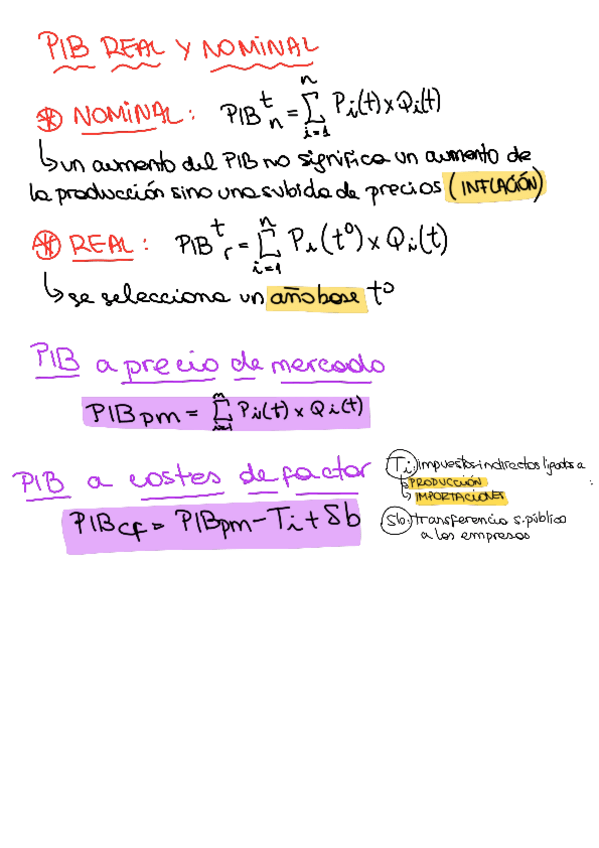 PIB REAL Y NOMINAL
NOMINAL: PIB^t_n = Σ_{i=1}^{n} Pi(t) x Qi(t)
↳ un aumento del PIB no significa un aumento de
la producción sino una subida de precios (INFLACIÓN)
REAL: PIB^t_r = Σ_{i=1}^{n} Pi(t^0) x Qi(t)
↳ se selecciona un año base t^0
PIB a precio de mercado
PIB pm = Σ_{i=1}^{n} Pi(t) x Qi(t)
PIB a costes de factor
PIBcf = PIBpm - Ti + Sb
Ti: impuestos indirectos ligados a :
↳ PRODUCCIÓN
↳ IMPORTACIONES
Sb: transferencia s.público
a las empresas